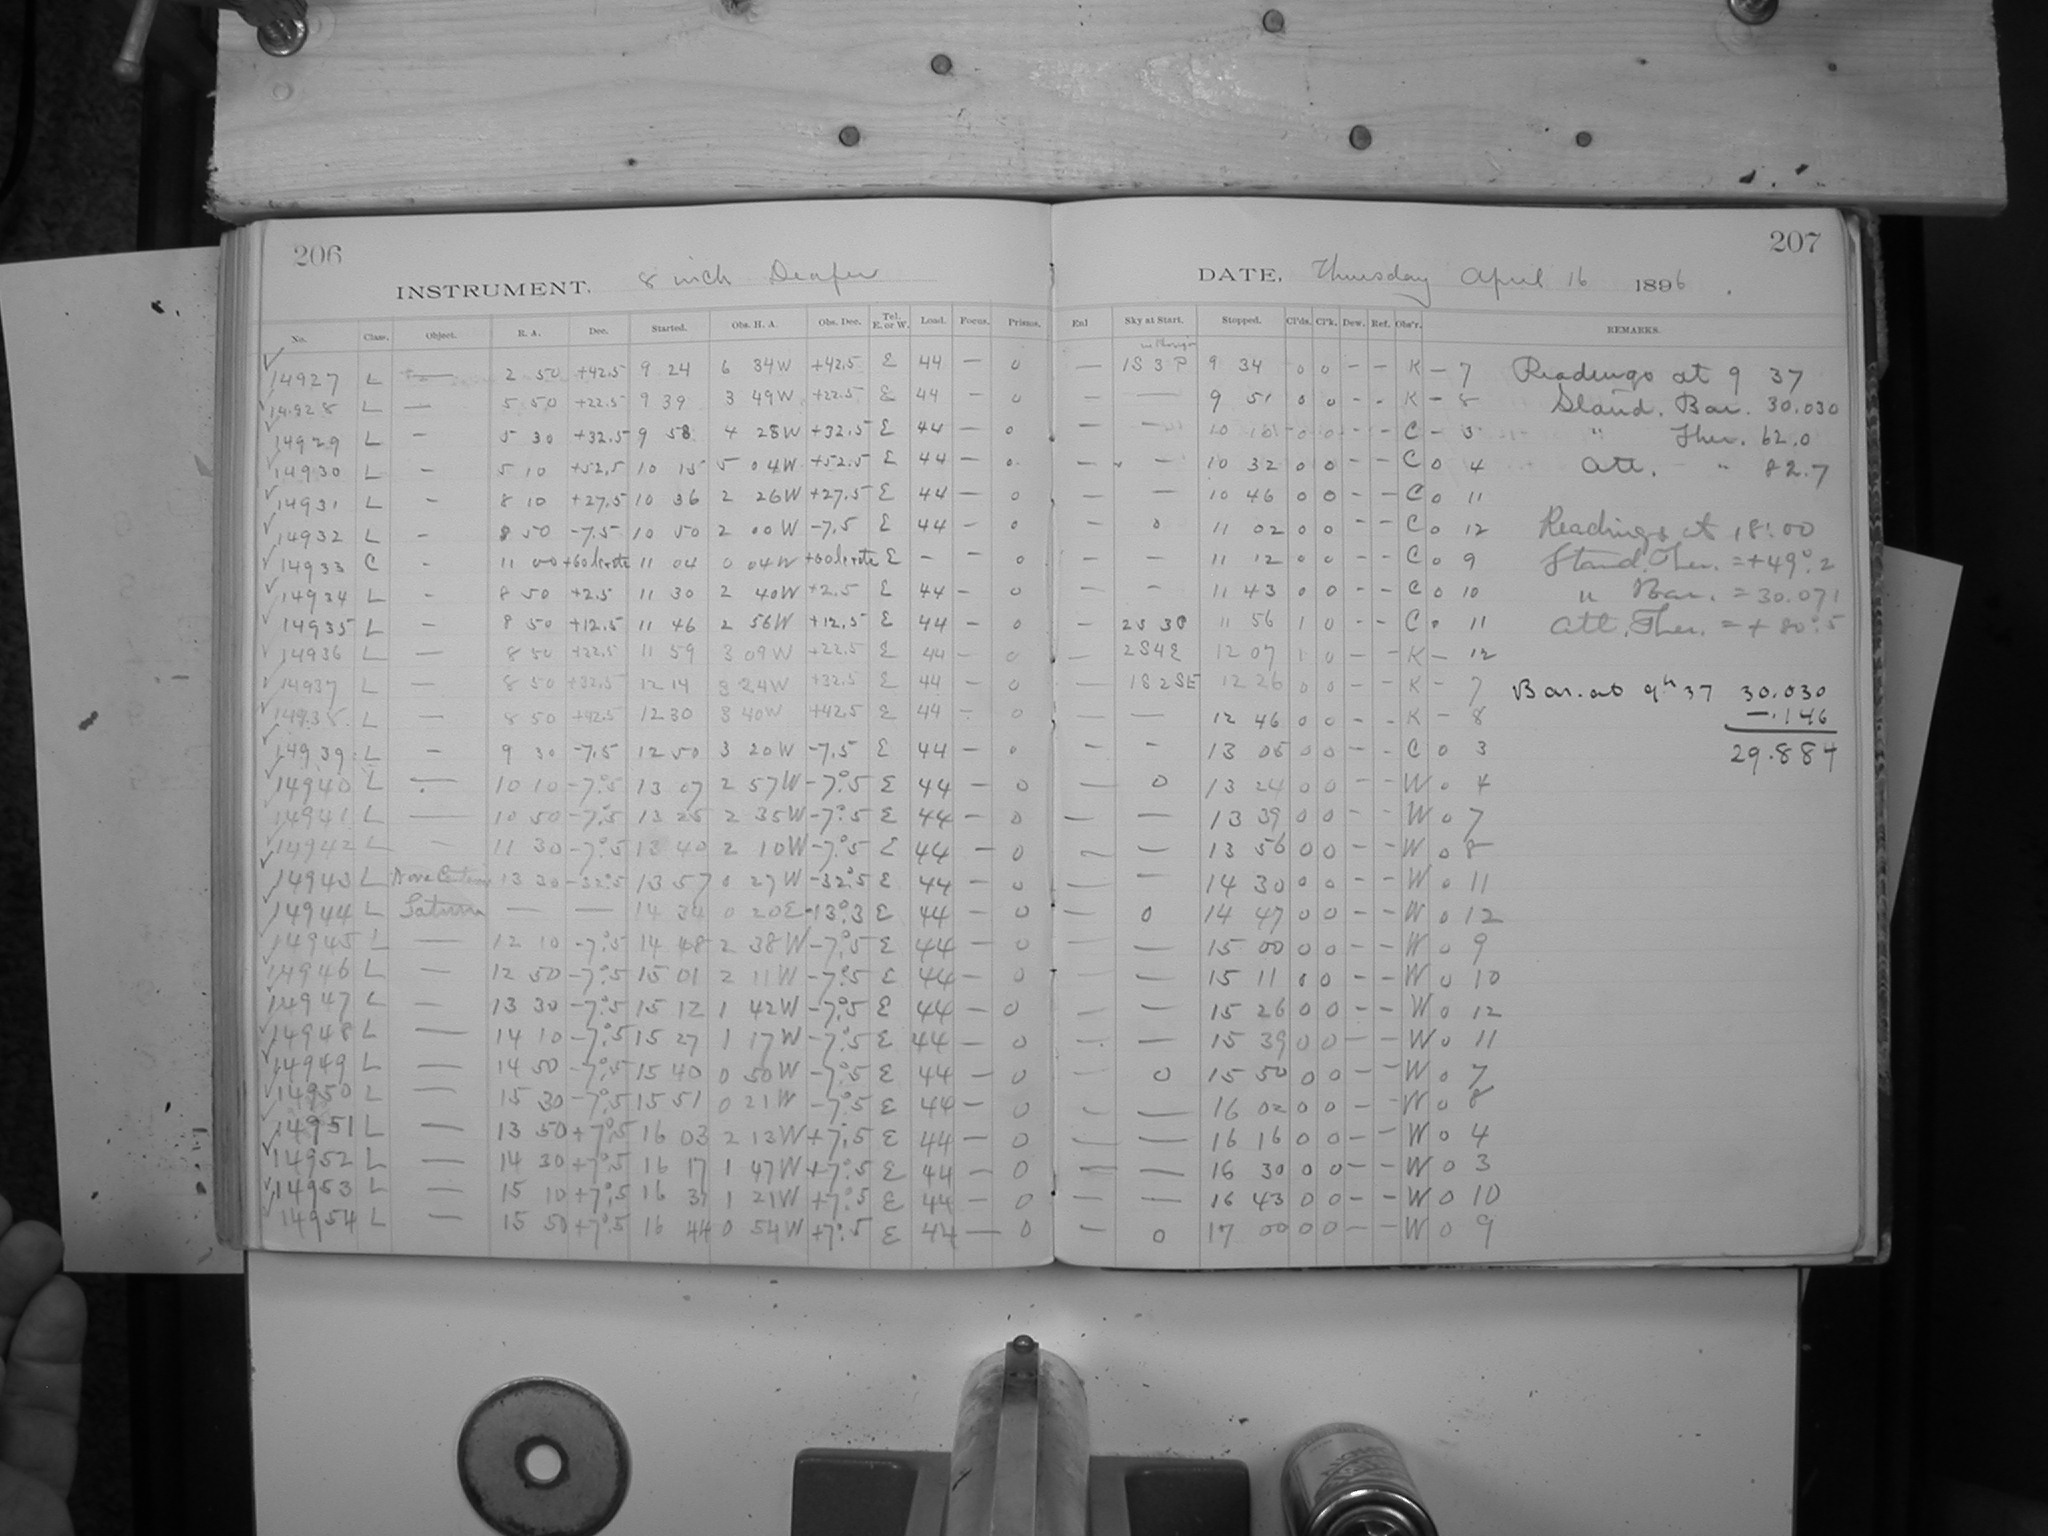 206
207
INSTRUMENT. 8 inch Draper
DATE, Thursday April 16 1896.
No. Class. Object. R. A. Dec. Started. Obs. H. A. Obs. Dec. Tel. E. or W. Load. Focus. Prisms. Enl Sky at Start. Stopped. Cl'ds. Cl'k. Dew. Ref. Obs'r. REMARKS.
14927 L — 2 50 +42.5 9 24 6 34W +42.5 E 44 — 0 — 1S 3P 9 34 0 0 - - K - 7 Readings at 9 37
14928 L — 5 50 +22.5 9 39 3 49W +22.5 E 44 - 0 — — 9 51 0 0 - - K - 8 Stand. Bar. 30.030
14929 L - 5 30 +32.5 9 58 4 28W +32.5 E 44 - 0 - - 10 0 0 - - C - 3 " Ther. 62.0
14930 L - 5 10 +52.5 10 15 5 04W +52.5 E 44 - 0 - - 10 32 0 0 - - C 0 4 Att. " 82.7
14931 L - 8 10 +27.5 10 36 2 26W +27.5 E 44 - 0 - - 10 46 0 0 - - C 0 11
14932 L - 8 50 -7.5 10 50 2 00W -7.5 E 44 - 0 - 0 11 02 0 0 - - C 0 12 Readings at 18:00
14933 C - 11 00 11 04 0 04W E - - 0 - - 11 12 0 0 - - C 0 9 Stand. Ther. = +49°.2
14934 L - 8 50 +2.5 11 30 2 40W +2.5 E 44 - 0 - - 11 43 0 0 - - C 0 10 " Bar. = 30.071
14935 L - 8 50 +12.5 11 46 2 56W +12.5 E 44 - 0 - 2S 3P 11 56 1 0 - - C 0 11 Att. Ther. = +80°.5
14936 L — 8 50 +22.5 11 59 3 09W +22.5 E 44 - 0 — 2S4E 12 07 1 0 - - K - 12
14937 L — 8 50 +32.5 12 14 3 24W +32.5 E 44 - 0 — 1S 2SE 12 26 0 0 - - K - 7 Bar. at 9h 37 30.030
14938 L — 8 50 +42.5 12 30 3 40W +42.5 E 44 - 0 — — 12 46 0 0 - - K - 8 -.146
14939 L - 9 30 -7.5 12 50 3 20W -7.5 E 44 - 0 - - 13 05 0 0 - - C 0 3 29.884
14940 L — 10 10 -7°.5 13 07 2 57W -7°.5 E 44 - 0 — 0 13 24 0 0 - - W 0 4
14941 L — 10 50 -7.5 13 25 2 35W -7°.5 E 44 - 0 — — 13 39 0 0 - - W 0 7
14942 L - 11 30 -7°.5 13 40 2 10W -7°.5 E 44 - 0 - — 13 56 0 0 - - W 0 8
14943 L Nova 13 30 -32°.5 13 57 0 27W -32°.5 E 44 - 0 — — 14 30 0 0 - - W 0 11
14944 L Saturn — — 14 34 0 20E -13°.3 E 44 - 0 — 0 14 47 0 0 - - W 0 12
14945 L — 12 10 -7°.5 14 48 2 38W -7°.5 E 44 - 0 — — 15 00 0 0 - - W 0 9
14946 L — 12 50 -7°.5 15 01 2 11W -7°.5 E 44 - 0 — — 15 11 0 0 - - W 0 10
14947 L — 13 30 -7°.5 15 12 1 42W -7°.5 E 44 - 0 — — 15 26 0 0 - - W 0 12
14948 L — 14 10 -7°.5 15 27 1 17W -7°.5 E 44 - 0 — — 15 39 0 0 - - W 0 11
14949 L — 14 50 -7°.5 15 40 0 50W -7°.5 E 44 - 0 — 0 15 50 0 0 - - W 0 7
14950 L — 15 30 -7°.5 15 51 0 21W -7°.5 E 44 - 0 - — 16 02 0 0 - - W 0 8
14951 L — 13 50 +7°.5 16 03 2 13W +7°.5 E 44 - 0 — — 16 16 0 0 - - W 0 4
14952 L — 14 30 +7°.5 16 17 1 47W +7°.5 E 44 - 0 — — 16 30 0 0 - - W 0 3
14953 L — 15 10 +7°.5 16 31 1 21W +7°.5 E 44 - 0 — — 16 43 0 0 - - W 0 10
14954 L — 15 50 +7°.5 16 44 0 54W +7°.5 E 44 — 0 - 0 17 00 0 0 - - W 0 9